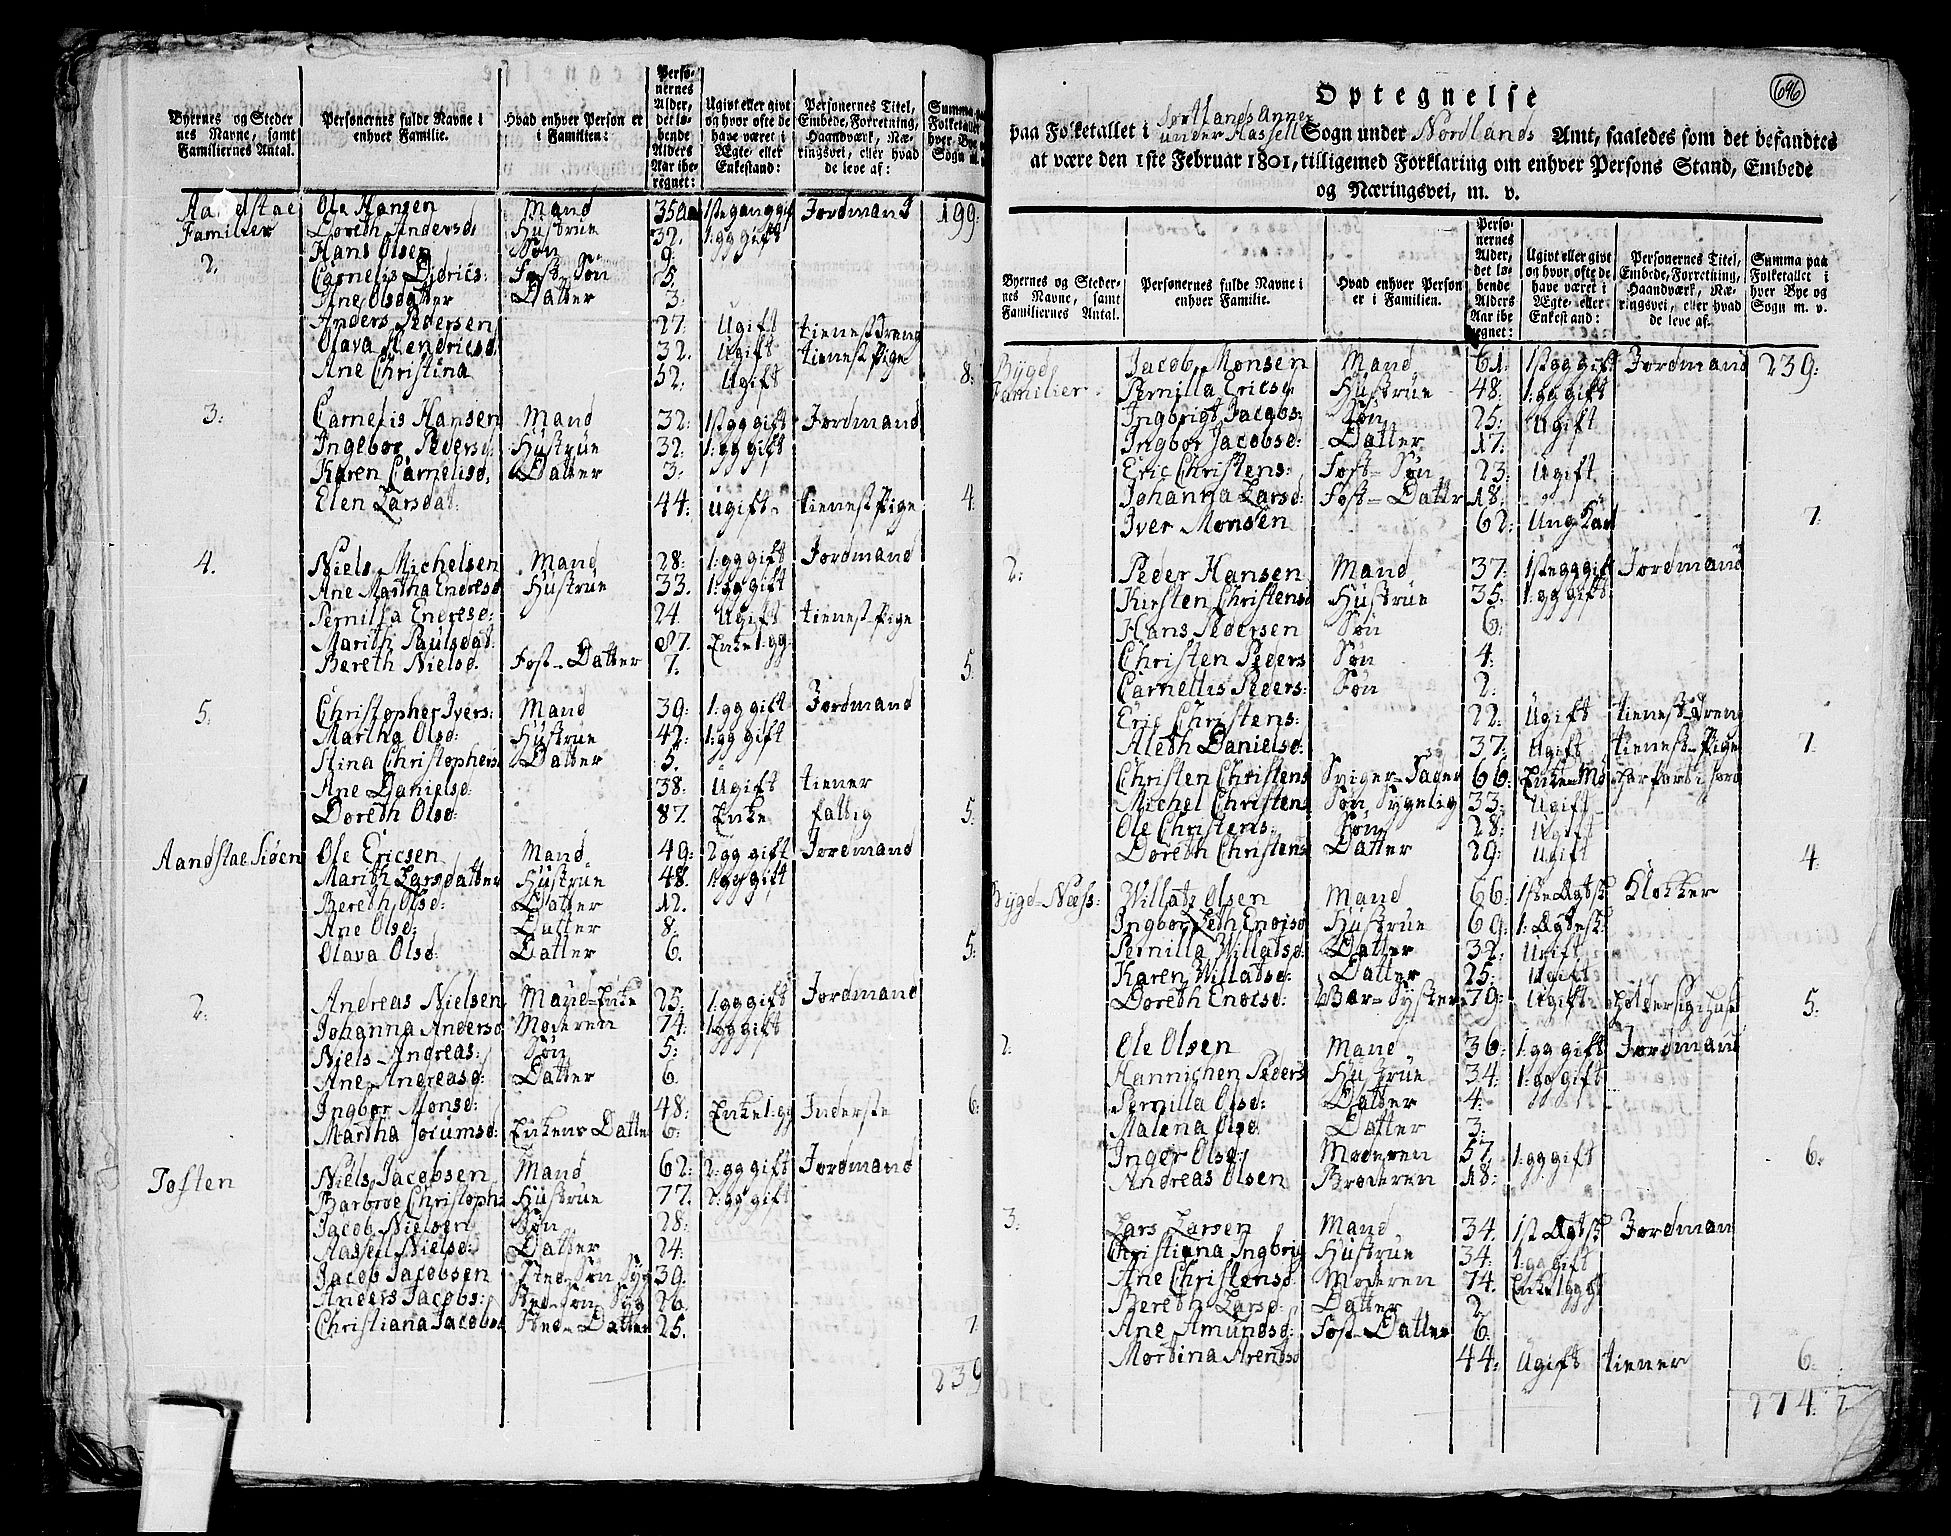 Byernes og Steder
nes Navne, samt
Familiernes Antal.
Personernes fulde Navne i
enhver Familie.
Hvad enhver Person er
i Familien:
Perso-
nernes
Alder,
det lø-
bende
Alders
Aar ibe-
regnet:
Ugivt eller givt
og hvor ofte de
have været i
Ægte- eller
Enkestand:
Personernes Titel,
Embede, Forretning,
Haandværk, Næ-
ringsvei, eller hvad
de leve af:
Summa paa
Folketallet
hver Bye
Sogn m.
Aandstae Ole Hansen Mand 35 Aar 1ste gang gift Jordmand 199
Familier Doreth Andersd. Hustrue 32. 1: gg gift
Hans Olsen Søn 9.
2. Carnelis Didrics: Fost-Søn 5.
Ane Olsdatter Datter 3.
Anders Pedersen 27. Ugift tienest Dreng
Olava Hendricsd. 32. Ugift tienest Pige
Ane Christina 52. Ugift 8:
3: Carnelis Hansen Mand 32: 1st gg gift Jordmand
Ingebor Pedersd: Hustrue 32: 1: gg gift
Karen Carnelisd, Datter 3:
Elen Larsdat: 44: Ugift tienest Pige 4
4. Niels Michelsen Mand 28: 1: gg gift Jordmand
Ane Martha Endresd Hustrue 33. 1: gg gift
Pernilla Endresd: 24 Ugift tienest-Pige
Marith Paulsdat: 87. Enke 1: gg
Bereth Nielsd. Fost-Datter 7. 5
5. Christopher Ivers: Mand 39: 1: gg gift Jordmand
Martha Olsd: Hustrue 42: 1: gg gift
Stina Christophers Datter 5.
Ane Danielsd: 38: Ugift tiener
Doreth Olsd: 87. Enke fattig 5:
Aandstae Siøen Ole Ericsen Mand 49: 2 gg gift Jordmand
Marith Larsdatter Hustrue 48. 1 gg gift
Bereth Olsd: Datter 12.
Ane Olsd: Datter 8.
Olava Olsd: Datter 6. 5:
2: Andreas Nielsen 25. 1: gg gift Jordmand
Johanna Andersd Moderen 74: 1: gg gift
Niels Andreas: Søn 5:
Ane Andreasd: Datter 6.
Ingbor Monsd: 48: Enke 1: gg Inderste 6:
Martha Jocumsd: Enkens Datter 6:
Toften Niels Jacobsen Mand 62: 2: gg gift Jordmand
Barbroe Christoph: Hustrue 77. 2: gg gift
Jacob Nielsen Søn 28:
Massell Nielsd: Datter 24:
Jacob Jacobsen Sted-Søn Syg 39.
Anders Jacobs: Sted-Søn Syg 26.
Christiana Jacobsd Sted-Datter 25. 7
239
696
Optegnelse
paa Folketallet i Sortlands Annex under Hassell Sogn under Nordlands Amt, saaledes som det befandtes
at være den 1ste Februar 1801, tilligemed Forklaring om enhver Persons Stand, Embede
og Næringsvei, m. v.
Byernes og Steder-
nes Navne, samt
Familiernes Antal.
Personernes fulde Navne i
enhver Familie.
Hvad enhver Person
er i Familien.
Perso-
nernes
Alder,
det lø-
bende
Alders
Aar ibe
regnet:
Ugivt eller givt
og hvor ofte de
have været i
Ægte- eller
Enkestand:
Personernes Titel,
Embede, Forretning,
Haandværk, Næ-
ringsvei, eller hvad
de leve af.
Summa paa
Folketallet i
hver Bye og
Sogn m. v.
Bygd Jacob Monsen Mand 61: 1st gg gift Jordmand 239:
Familier: Pernilla Ericsd: Hustrue 48: 1: gg gift
Ingbrigt Jacobs: Søn 25: Ugift
Ingbor Jacobsd: Datter 17:
Eric Christens: Fost-Søn 23: Ugift
Johanna Larsd: Fost-Datter 18:
Iver Monsen 62: Ung Karl 7:
2: Peder Hansen Mand 37: 1ste gg gift Jordmand
Kirsten Christensd Hustrue 35. 1: gg gift
Hans Pedersen Søn 6:
Christen Peders Søn 4:
Carnellis Peders: Søn 2:
Eric Christens: 22: Ugift tienest-Dreng
Aleth Danielsd: 37: Ugift tienest-Pige 7:
Christen Christens Sviger-Fader 66: Enke-Md
Michel Christens Søn Sygelig 33: Ugift
Ole Christens: Søn 28: Ugift
Doreth Christens Datter 29: Ugift 4
Bygd-Næss: Willats Olsen Mand 66: 1ste Ægtsk Klokker
Ingbor Leth Endisd Hustrue 69: 1: Ægtesk:
Pernilla Willatsd: Datter 32: Ugift
Karen Willatsd: Datter 25: Ugift
Doreth Enersd: Syster 79: Ugift 5:
2. Ole Olsen Mand 36: 1: gg gift Jordmand
Hannichen Peders Hustrue 34: 1: gg gift
Pernilla Olsd: Datter 4:
Malena Olsd Datter 3:
Inger Olsd: Moderen 57. 1: gg gift 6:
Andreas Olsen Broderen 18:
3. Lars Larsen Mand 34. 1st Ægtsk Jordman
Christiana Ingbrig Hustrue 34: 1: gg gift
Ane Christensd: Moderen 74. Enke 1 gg gt
Bereth Larsd: Datter 2
Ane Amundsd: Fost-Datter 6:
Mortina Arentsd 44: Ugift tiener 6:
274.